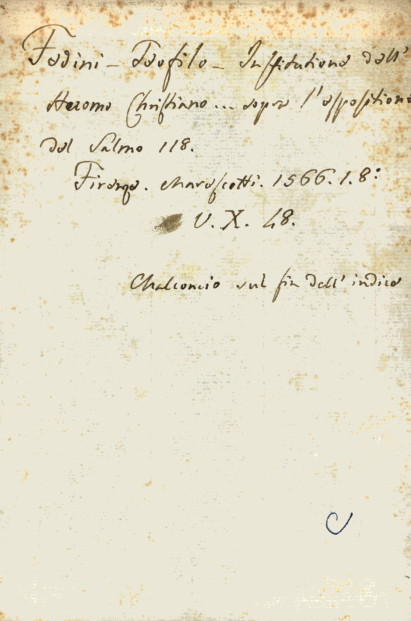 Fedini - Teofilo - Institutione dell'
Huomo Christiano... sopra l'espositione
del Salmo 118.
Firenze. Marescotti. 1566. 1. 8:
V. X. 48.
sul fin dell' indice